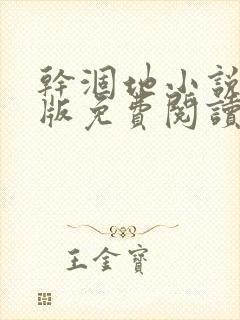 幹涸地小說
版免費閱讀
王金寶